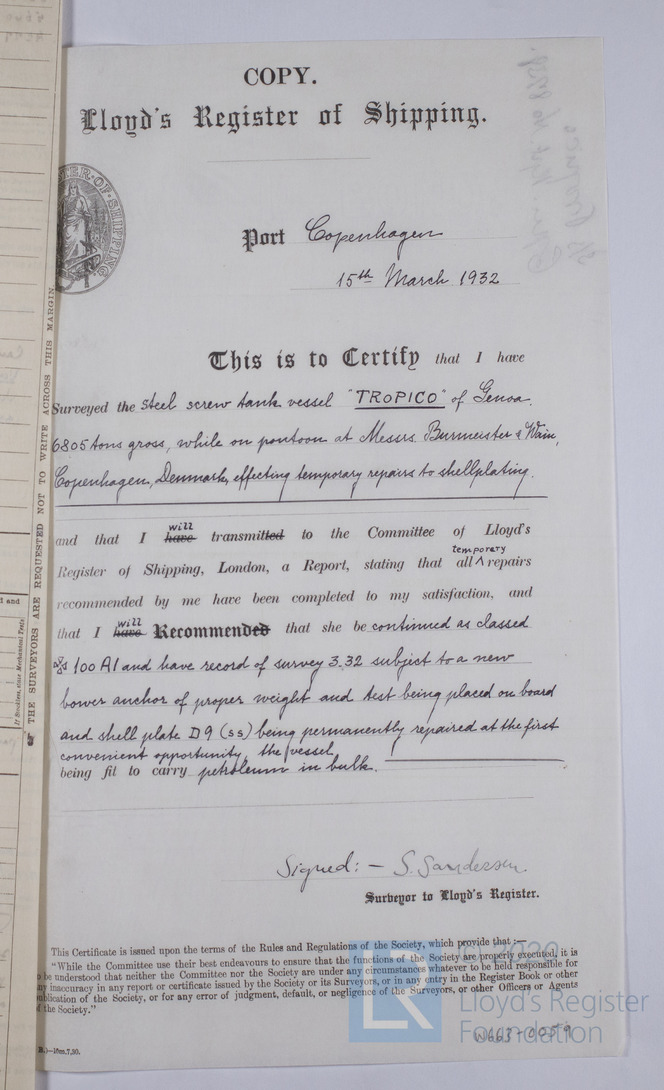 COPY.
Lloyd's Register of Shipping.
Port Copenhagen
15th March 1932
This is to Certify that I have
Surveyed the steel screw tank vessel "TROPICO" of Genoa.
6805 tons gross, while on pontoon at Messrs. Burmeister & Wain,
Copenhagen, Denmark, effecting temporary repairs to shellplating.
will
and that I have transmitted to the Committee of Lloyd's
temporary
Register of Shipping, London, a Report, stating that all repairs
recommended by me have been completed to my satisfaction, and
will
that I have Recommended that she be continued as classed
100 A1 and have record of survey 3.32 subject to a new
bower anchor of proper weight and test being placed on board
and shell plate D9 (ss) being permanently repaired at the first
convenient opportunity, the vessel
being fit to carry petroleum in bulk.
Signed: — S. Sandersen.
Surveyor to Lloyd's Register.
This Certificate is issued upon the terms of the Rules and Regulations of the Society, which provide that :—
"While the Committee use their best endeavours to ensure that the functions of the Society are properly executed, it is
be understood that neither the Committee nor the Society are under any circumstances whatever to be held responsible for
ny inaccuracy in any report or certificate issued by the Society or its Surveyors, or in any entry in the Register Book or other
ublication of the Society, or for any error of judgment, default, or negligence of the Surveyors, or other Officers or Agents
f the Society."
—10m,7,30.
W663-0059
THE SURVEYORS ARE REQUESTED NOT TO WRITE ACROSS THIS MARGIN.
TER·OF·SHIPPING
© 2020
Lloyd's Register
Foundation